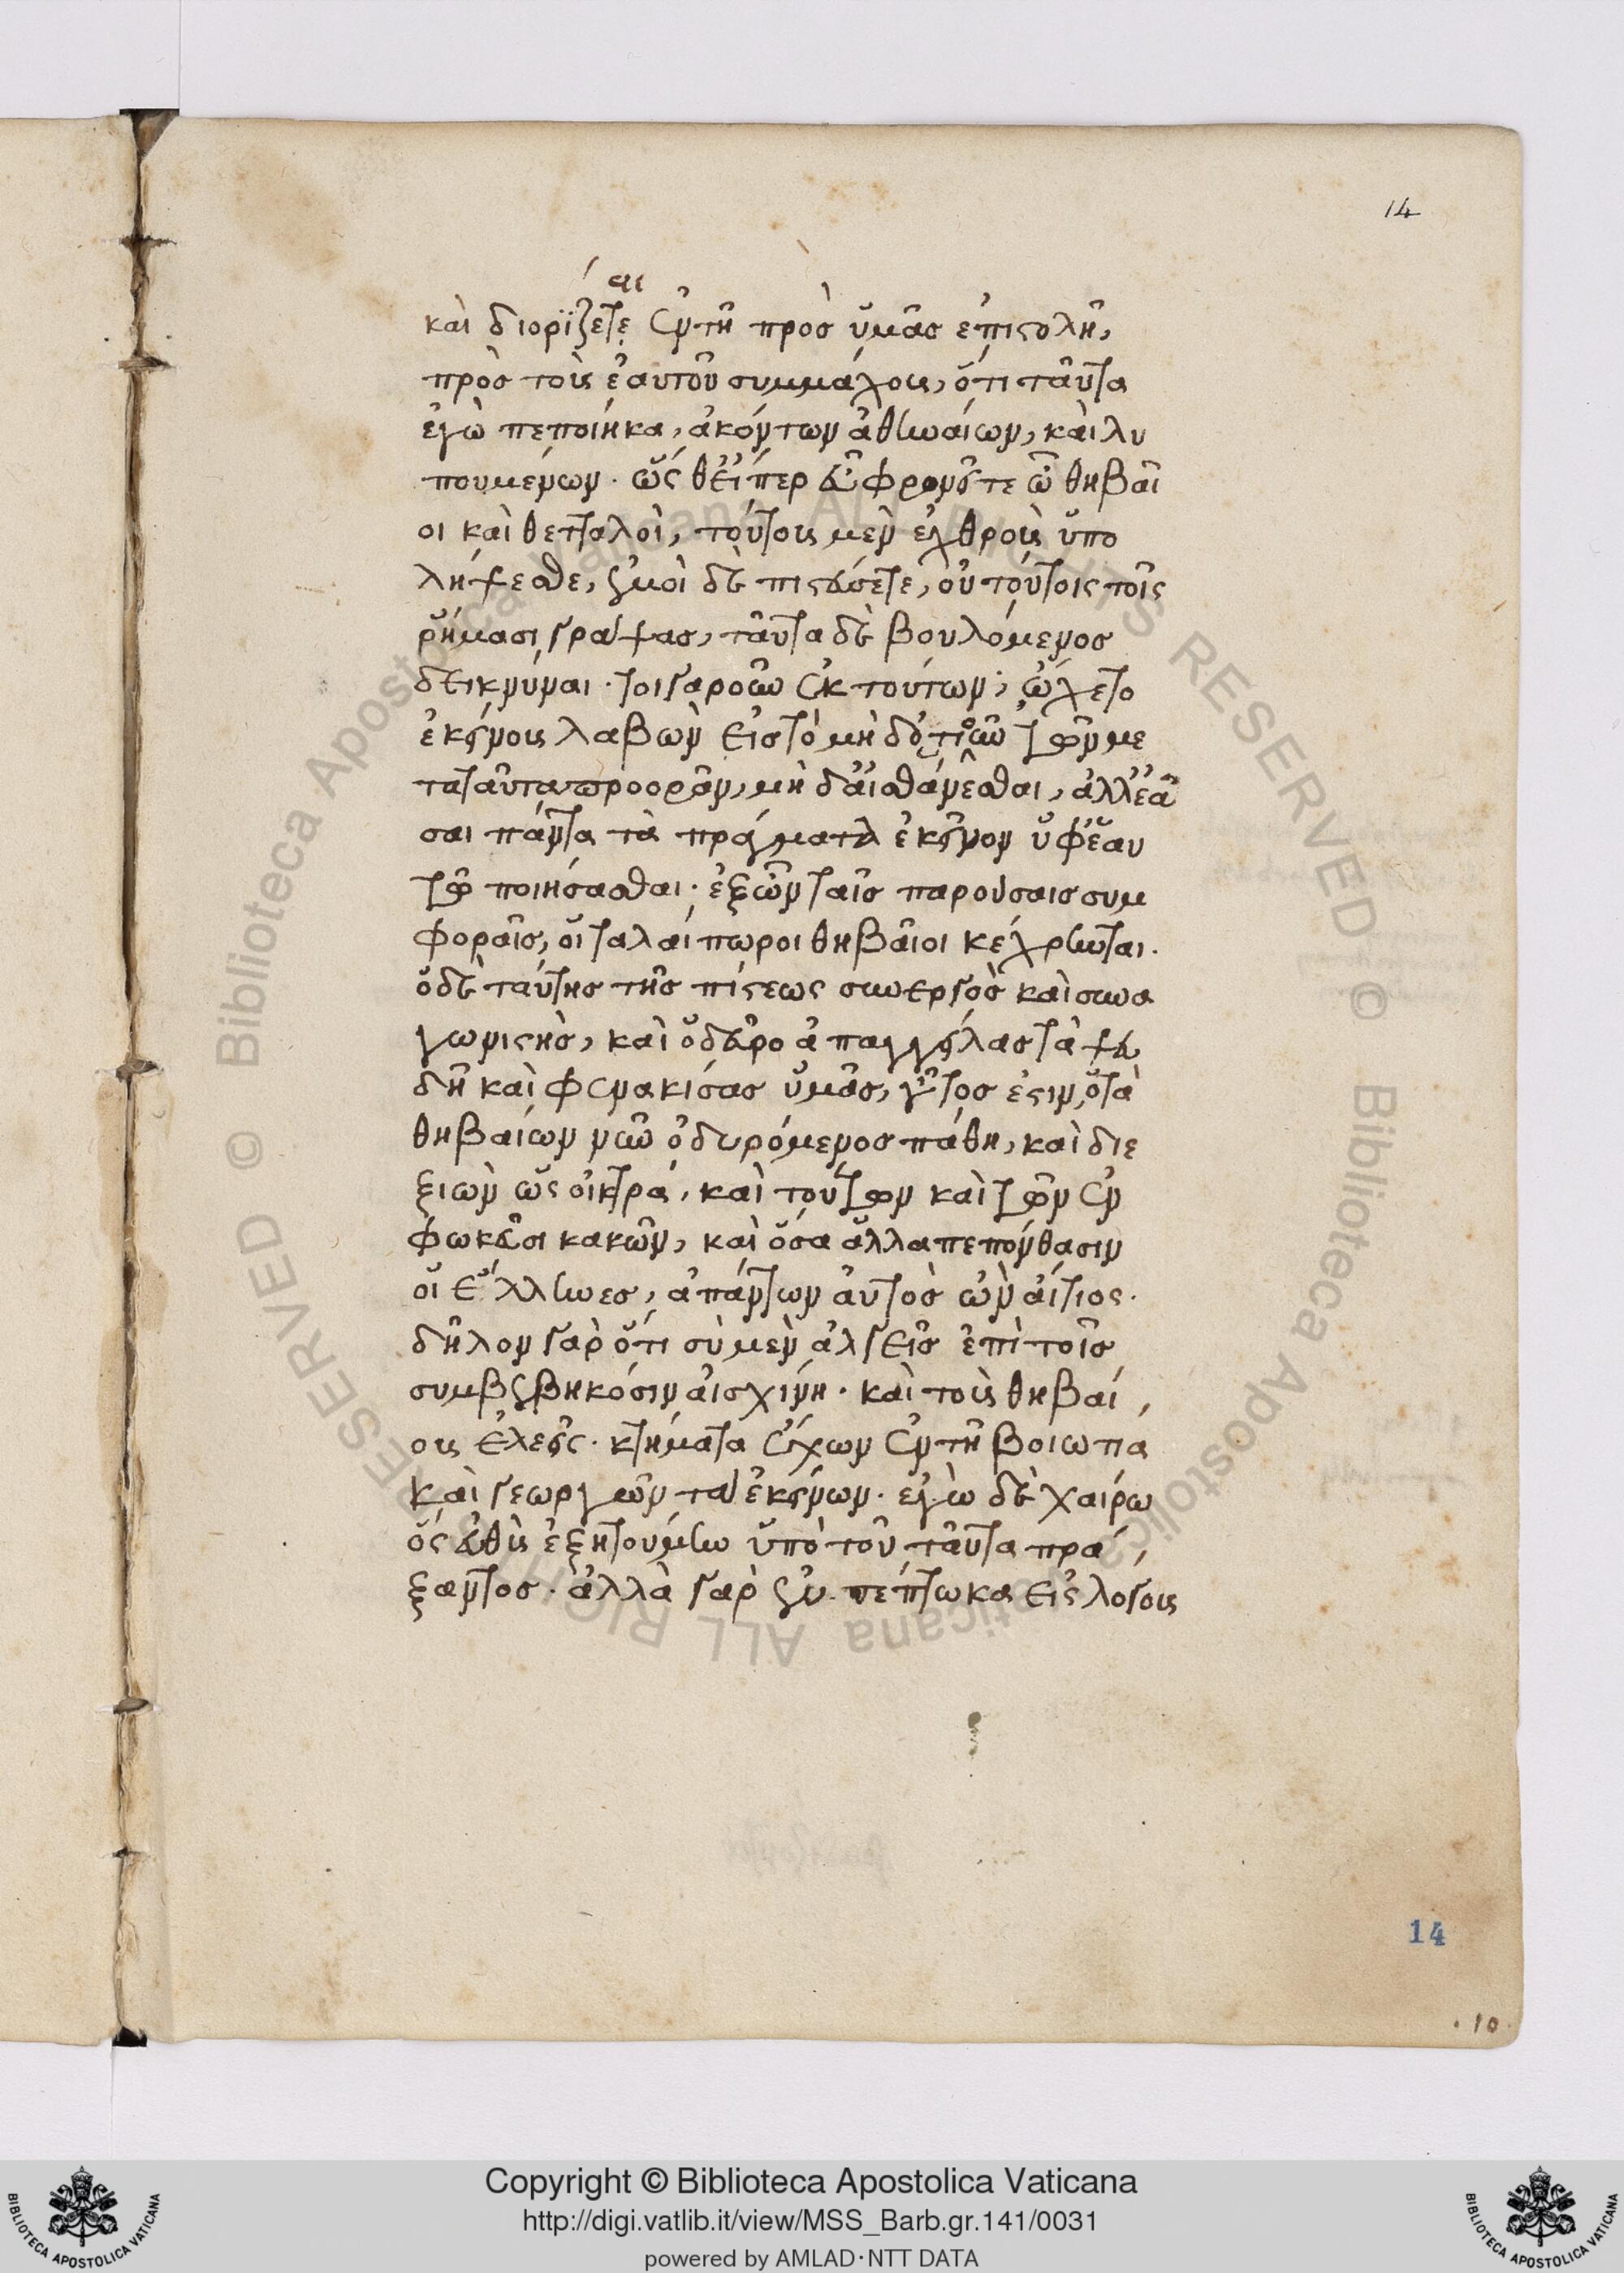 14
αι
καὶ διορΐζετε ἐν τῆ πρὸσ ὑμᾶσ ἐπιστολῆ,
πρὸσ τοὺς ἑαυτοῦ συμμάχους, ὅτι ταῦτα
ἐγὼ πεποίηκα, ἀκόντων ἀθηναίων, καὶ λυ
πουμένων. ὥς θ' εἴπερ εὖ φρονεῖτε ὦ θηβαῖ
οι καὶ θετταλοὶ, τούτους μὲν ἐχθροὺς ὑπο
λήψεσθε, ἐμοὶ δὲ πιστεύσετε, οὐ τούτοις τοῖς
ῥήμασι γράψας, ταῦτα δὲ βουλόμενοσ
δεικνύναι. τοιγαροῦν ἐκ τούτων, ὤχετο
ἐκείνους λαβὼν εἰσ τὸ μὴ δ' ὁτιοῦν τῶν με
τὰ ταῦτα προορᾶν, μὴ δ' αἰσθάνεσθαι, ἀλλ' ἐᾶ
σαι πάντα τὰ πράγματα ἐκεῖνον ὑφ' ἑαυ
τῶ ποιήσασθαι. ἐξ ὧν ταῖσ παρούσαισ συμ
φοραῖσ, οἱ ταλαίπωροι θηβαῖοι κέχρηνται.
ὁ δὲ ταύτησ τῆσ πίστεως συνεργὸσ καὶ συνα
γωνιστὴσ, καὶ ὁ δεῦρο ἀπαγγείλασ τὰ ψευ
δῆ καὶ φενακίσας ὑμᾶσ, οὗτοσ ἐστιν, ὁ τὰ
θηβαίων νῦν ὀδυρόμενοσ πάθη, καὶ διε
ξιὼν ὡς οἰκτρά, καὶ τούτων καὶ τῶν ἐν
φωκεῦσι κακῶν, καὶ ὅσα ἄλλα πεπόνθασιν
οἱ ἕλληνεσ, ἁπάντων αὐτὸσ ὢν αἴτιος.
δῆλον γὰρ ὅτι σὺ μὲν ἀλγεῖσ ἐπὶ τοῖσ
συμβεβηκόσιν αἰσχίνη. καὶ τοὺς θηβαί
ους ἐλεεῖς. κτήματα ἔχων ἐν τῆ βοιωτία
καὶ γεωργῶν τὰ ἐκείνων. ἐγὼ δὲ χαίρω
ὅς εὐθὺς ἐξητούμην ὑπὸ τοῦ ταῦτα πρά
ξαντοσ. ἀλλὰ γὰρ ἐμπέπτωκα εἰς λόγους
14
.10.
© Biblioteca Apostolica Vaticana ALL RIGHTS RESERVED © Biblioteca Apostolica Vaticana ALL RIGHTS RESERVED
BIBLIOTECA APOSTOLICA VATICANA
Copyright © Biblioteca Apostolica Vaticana
http://digi.vatlib.it/view/MSS_Barb.gr.141/0031
powered by AMLAD·NTT DATA
BIBLIOTECA APOSTOLICA VATICANA